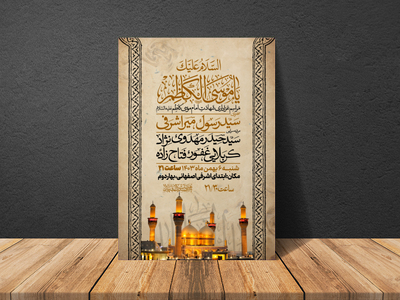 السلام علیک
یا موسی الکاظم
مراسم عزاداری شهادت امام موسی کاظم علیه السلام
سید رسول میراشرفی
سید حیدر مهدوی نژاد
کربلایی غفور فتاح زاده
شنبه ۶ بهمن ماه ۱۴۰۳ ساعت ۲۱
مکان: ابتدای اشرفی اصفهانی، بهار دوم
ساعت: ۲۱/۳۰